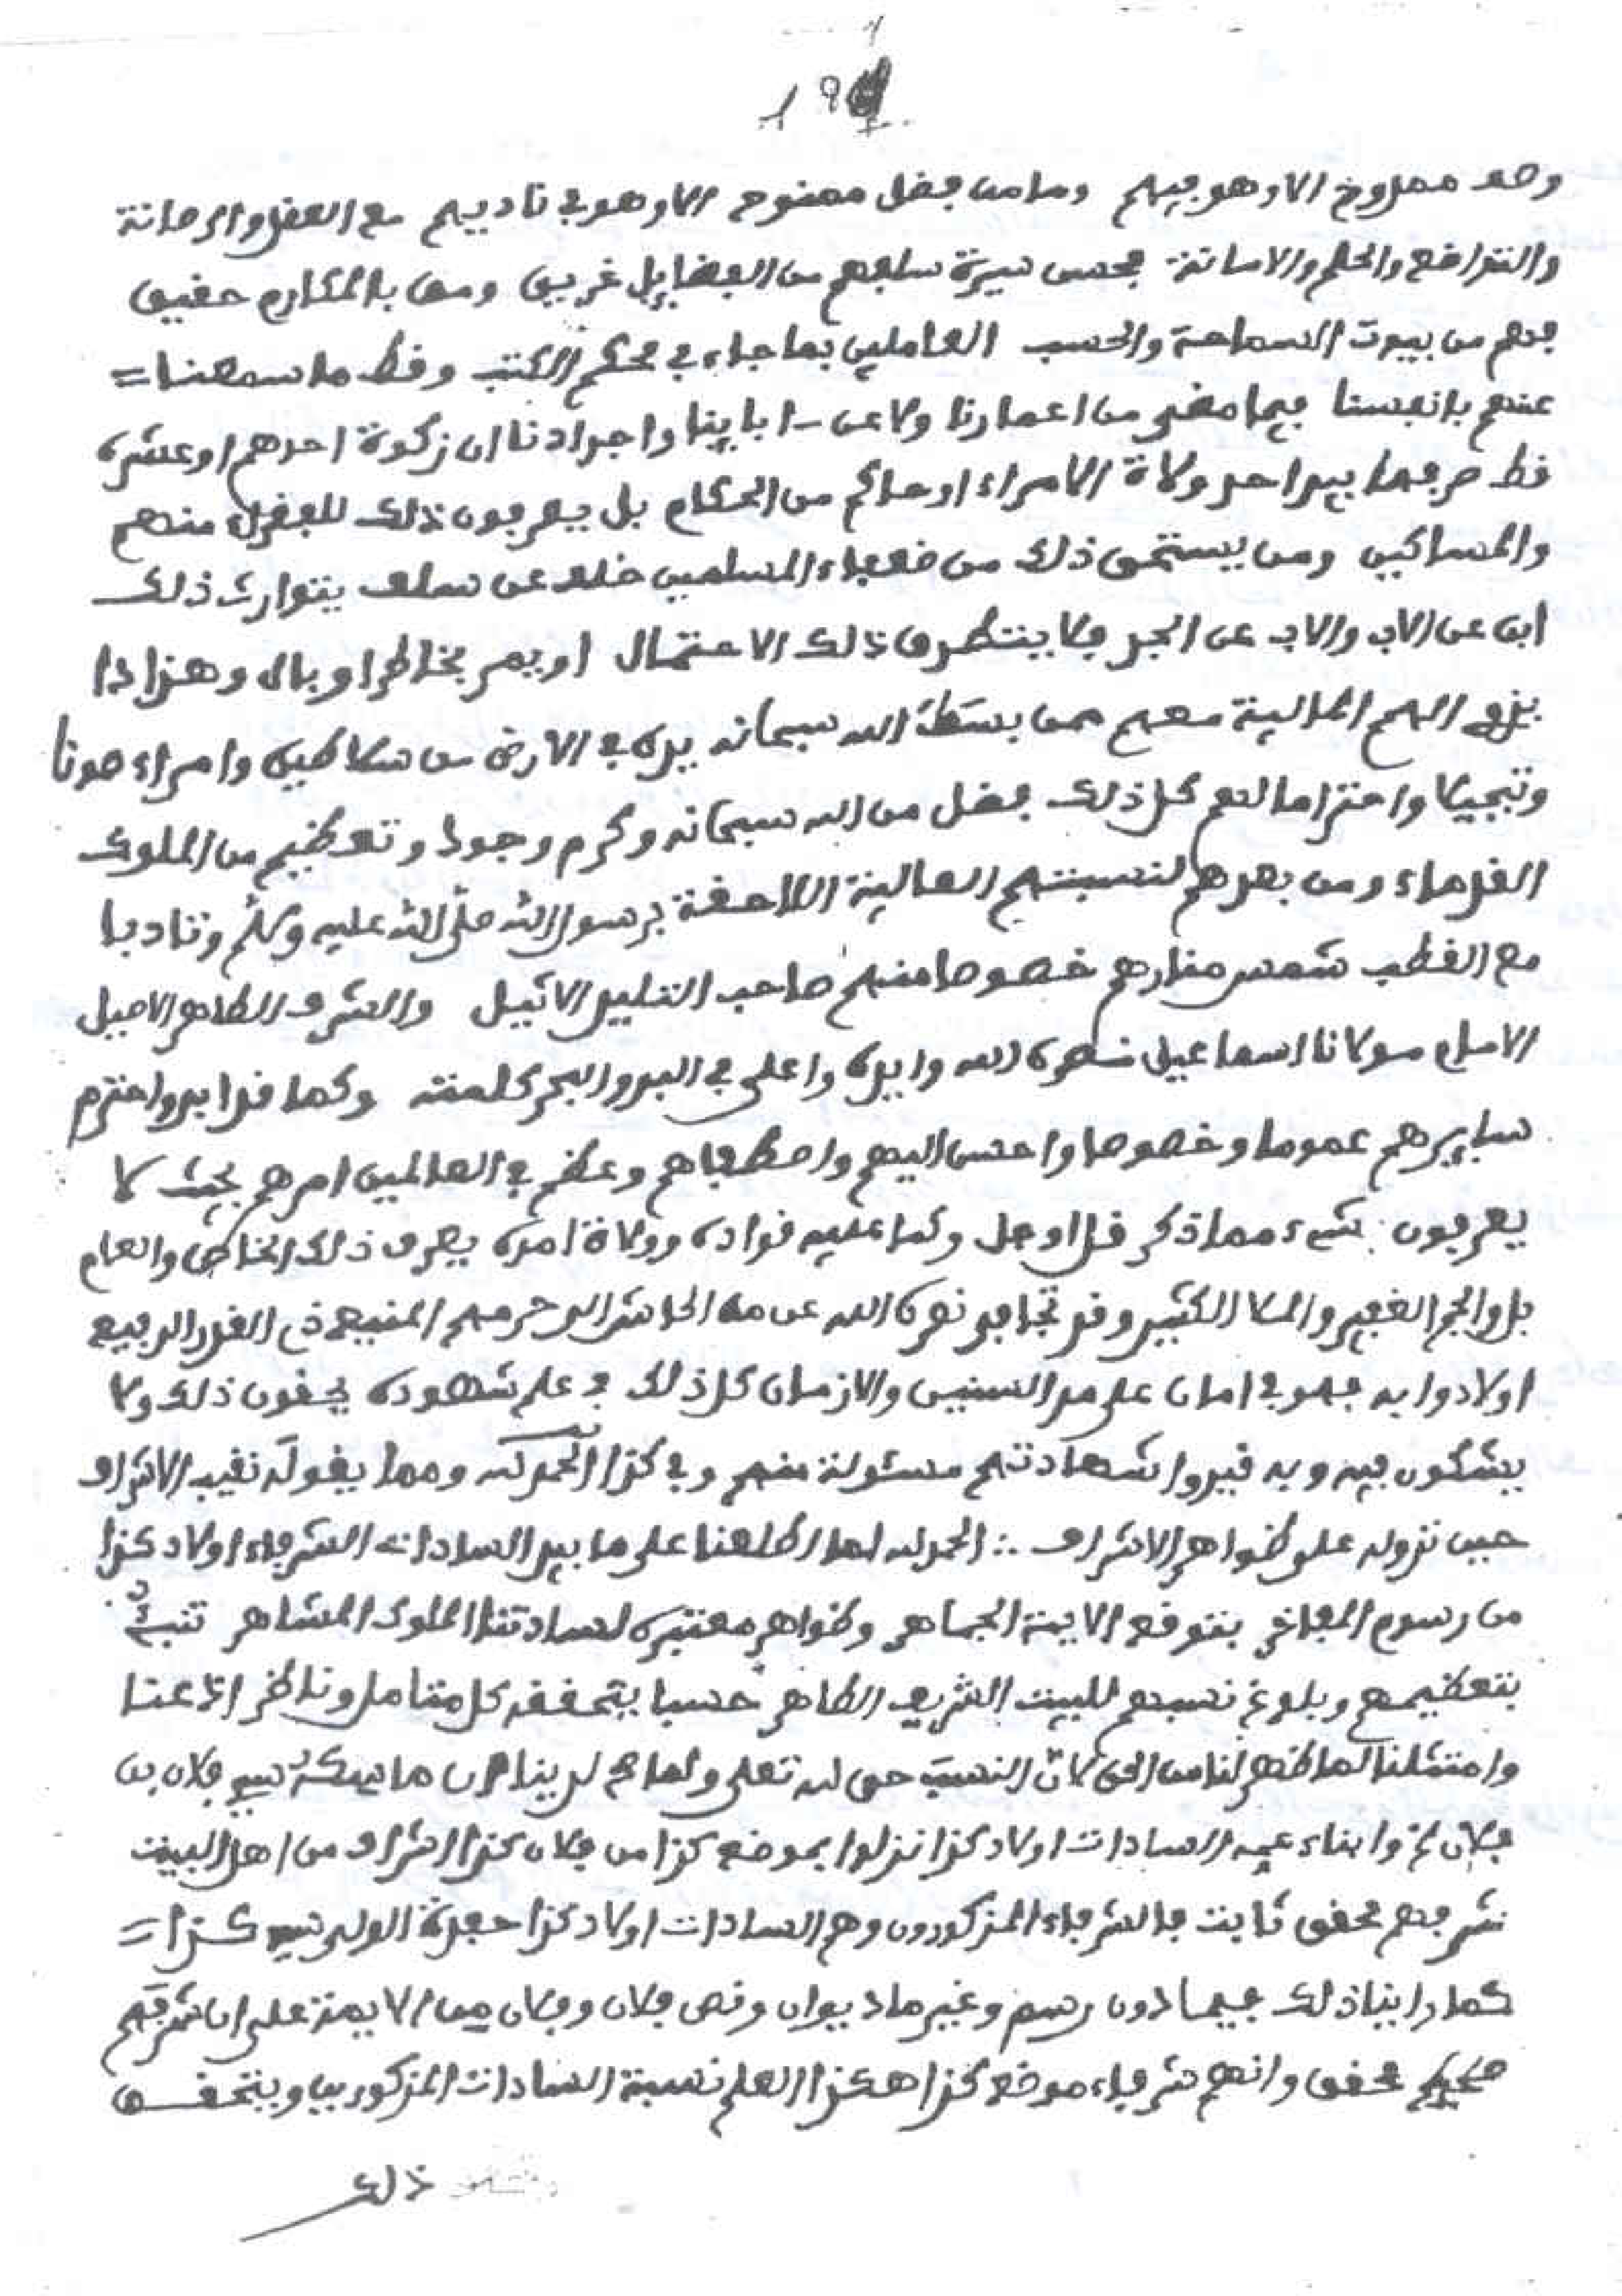 وصف ممدوح الا وهو فيهم وما من فضل ممنوح الا وهو في ناديهم مع العقل والرصانة
والتواضع والحلم والامانة فحسن سيرة سلفهم من الفضايل غريس ومن بالمكارم حقيق
فهم من بيوت السماحة والحسب العاملين بما جاء في محكم الكتب وقط ما سمعنا =
عنهم بانفسنا فيما مضى من اعمارنا ولا عن ءابايينا واجدادنا ان زكوة احدهم او عشره
قط صرفها بيد احد ولاة الامراء او حاكم من الحكام بل يصرفون ذلك للفقراء منهم
والمساكين ومن يستحق ذلك من ضعفاء المسلمين خلف عن سلف يتوارث ذلك
ابن عن الاب والاب عن الجد فلا ينتطرق ذلك الاحتمال او يمر بخاطر او بال وهذا اذا
بذلوا لهم المالية معهم ممن بسط الله سبحانه يده في الارض من سلاطين وامراء صونا
وتبجيلا واحتراما لهم كل ذلك فضل من الله سبحانه وكرم وجود وتعظيم من الملوك
القدماء ومن بعدهم لنسبتهم العالية اللاحقة برسول الله صلى الله عليه وسلم وتادبا
مع القطب شمس منارهم خصوصا منهم صاحب التليد الاثيل والشرف الطاهر الاصيل
الامام مولانا اسماعيل نصره الله وايده واعلى في البر والبحر كلمته وكما قد ابر واحترم
سايرهم عموما وخصوصا واحسن اليهم واصطفاهم وعظم في العالمين امرهم بحيث لا
يعرفون بشيء مما ذكر قل او جل وكما عليه قواده وولاة امره يعرف ذلك الخاص والعام
بل والجم الغفير والملا الكثير وقد تجافى نصره الله عن مال الحاشر الى حرمهم المنيع ذي القدر الرفيع
اولاد وابه فهو في امان على مر السنين والازمان كل ذلك في علم شهوده يحقون ذلك ولا
يشكون فيه وبه قيدوا شهادتهم مسئولة منهم وفي كذا الحمد لله ومما يقوله نقيب الاشراف
حين نزوله على ظواهر الاشراف ∴ الحمد لله لما اطلعنا على ما بيد السادات الشرفاء اولاد كذا
من رسوم المفاخر بتوقع الايمة الجماهر وظواهر معتبرة لسادتنا الملوك المشاهر تنبئ
بتعظيمهم وبلوغ نسبهم للبيت الشريف الطاهر حسبا يتحققه كل متامل وناظر اذعنا
وامتثلنا لما ظهر لنا من الحق لان النسب حق لله تعلى ولما صح لدينا ان ماسكه سيد فلان بن
فلان ثم وابناء عمه السادات اولاد كذا نزلوا بموضع كذا من فلان كذا اشراف من اهل البيت
شرفهم محقق ثابت فالشرفاء المذكورون وهم السادات اولاد كذا حفدة الولي سيد كذا =
كما راينا ذلك فيما دون رسم وغير ما ديوان ونص فلان وفلان من الايمة على ان شرفهم
صحيح محقق وانهم شرفاء موضع كذا هكذا العلم نسبة السادات المذكورين ويتحقق
ذلك